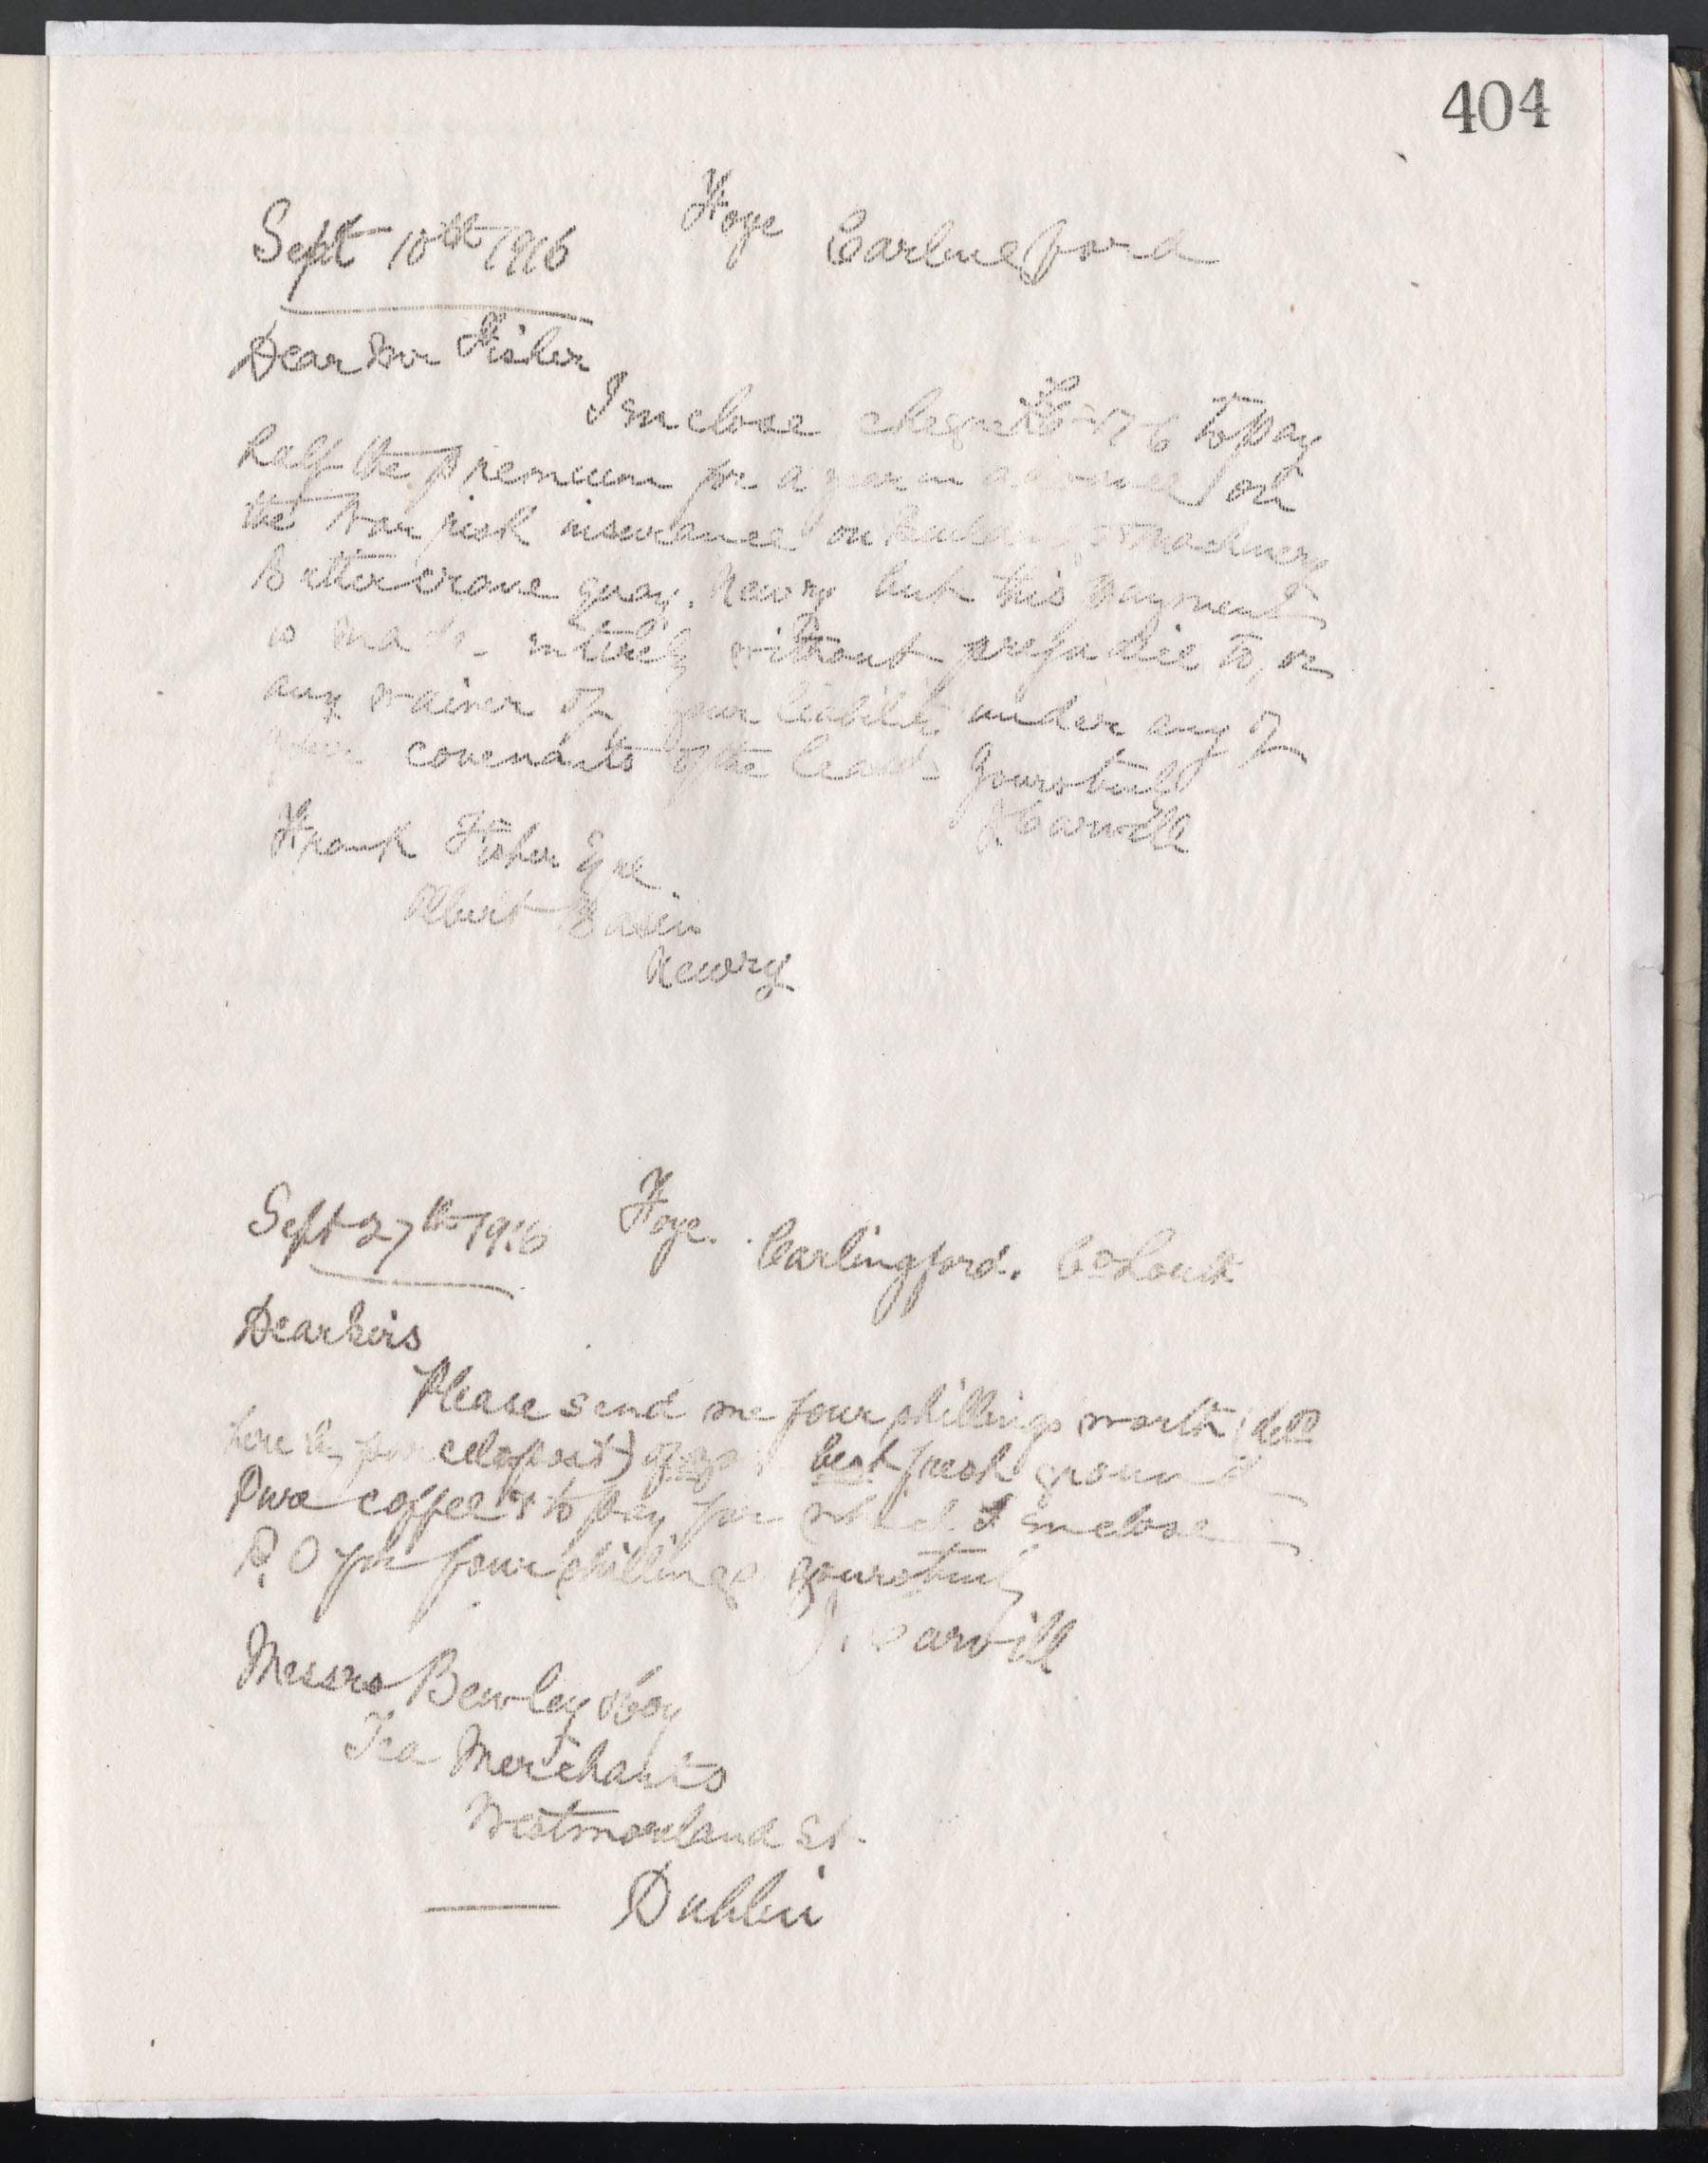 404
Sept 10th 1916 Foye Carlingford
Dear Mr Fisher
I enclose cheque £6-17-6 to pay
half the premium for a year in advance on
the War risk insurance on buildings & machinery
Buttercrane quay. Newry but this payment
is made entirely without prejudice to, or
any waiver of, your liability under any of
covenants of the lease Yours truly
J Carvill
Frank Fisher Esqre.
Albert Basin
Newry
Sept 27th 1916 Foye. Carlingford. Co Louth
Dear Sirs
Please send me four shillings worth (deld
here by parcel post) of your best fresh ground
Pure coffee & to pay for which I enclose
P.O for four shillings yours truly
J. Carvill
Messrs Bewley & Coy
Tea Merchants
Westmoreland St.
Dublin